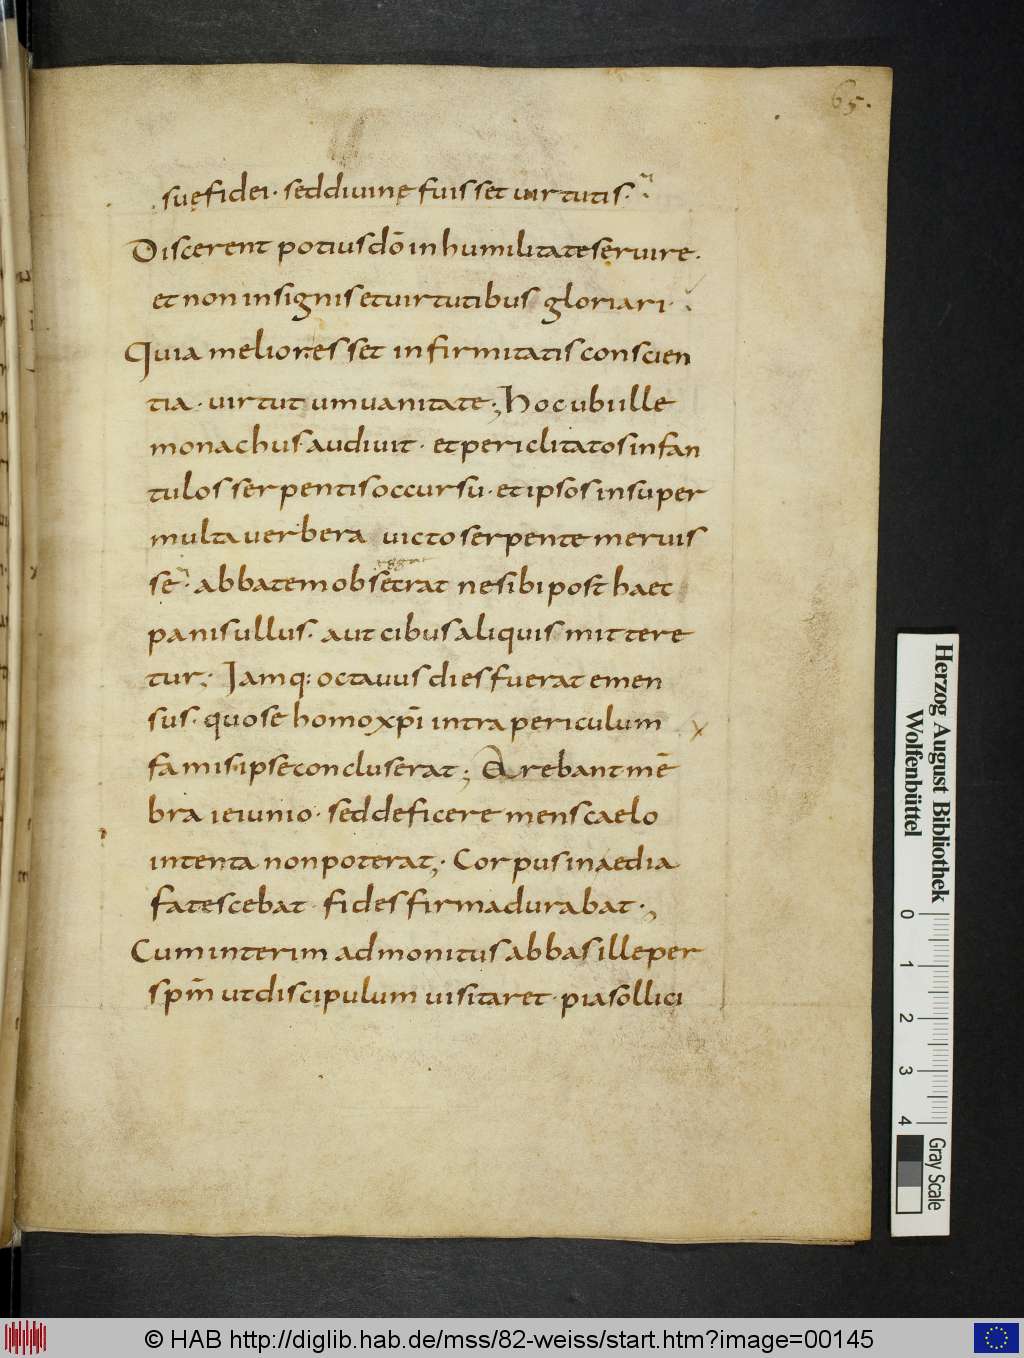 65.
suę fidei · sed divinę fuisset virtutis ·
Discerent potius dō in humilitate servire ·
et non in signis et virtutibus gloriari ·
Quia melior esset infirmitatis conscien
tia · virtutum vanitate ; Hoc ubi ille
monachus audivit · et periclitatos infan
tulos serpentis occursu · et ipsos insuper
multa verbera victo serpente meruis
se · abbatem obsecrat ne sibi post haec
panis ullus · aut cibus aliquis mittere
tur ; Iamq: octavus dies fuerat emen
sus · quo se homo xpi intra periculum
famis ipse concluserat ; Arebant mē
bra ieiunio · sed deficere mens caelo
intenta non poterat ; Corpus inaedia
fatescebat · fides firma durabat ;
Cum interim admonitus abbas ille per
spm ut discipulum visitaret · pia sollici
Herzog August Bibliothek
Wolfenbüttel
0 1 2 3 4
Gray Scale
© HAB http://diglib.hab.de/mss/82-weiss/start.htm?image=00145